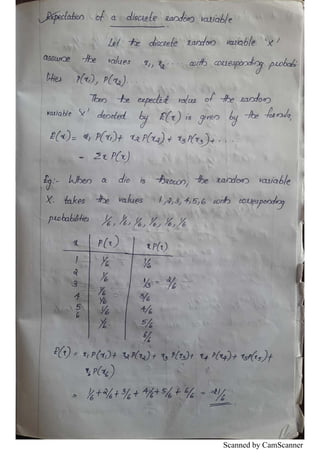 Expectation of a discrete random variable
Let the discrete random variable 'X'
assume the values x₁, x₂ .. with corresponding probabi
lities P(x₁), P(x₂).
Then the expected value of the random
variable 'X' denoted by E(x) is given by the formula,
E(x) = x₁ P(x₁) + x₂ P(x₂) + x₃ P(x₃) + ...
= Σx P(x)
Eg:- When a die is thrown, the random variable
X takes the values 1, 2, 3, 4, 5, 6 with corresponding
probabilities 1/6, 1/6, 1/6, 1/6, 1/6, 1/6
x P(x) xP(x)
1 1/6 1/6
2 1/6 1/3 = 2/6
3 1/6 3/6
4 1/6 4/6
5 1/6 5/6
6 1/6 6/6
E(x) = x₁ P(x₁) + x₂ P(x₂) + x₃ P(x₃) + x₄ P(x₄) + x₅ P(x₅) +
x₆ P(x₆)
= 1/6 + 2/6 + 3/6 + 4/6 + 5/6 + 6/6 = 21/6
Scanned by CamScanner